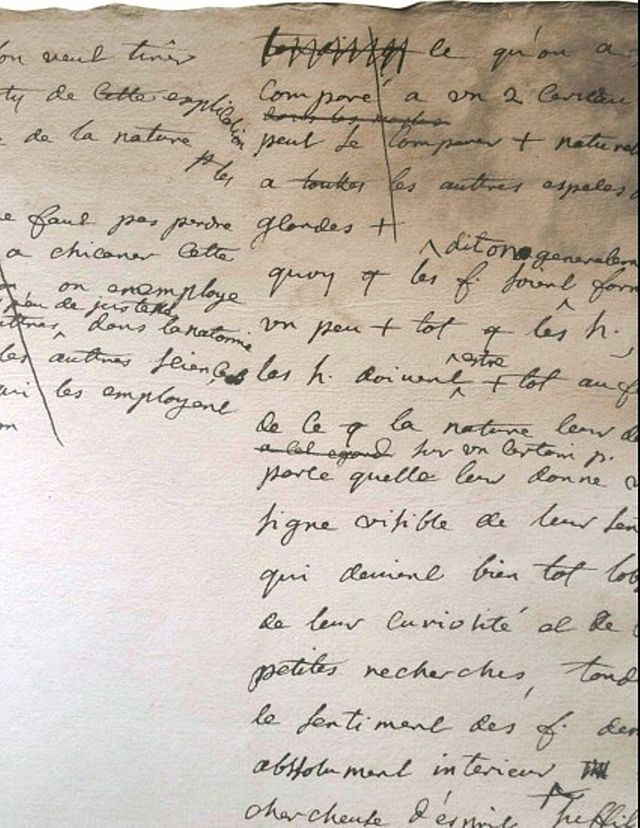 on veut tirer
ty de cette explication
de la nature
les
ne faut pas perdre
a chicaner cette
on en employe
peu de justesse
autres, dans lanatomie
les autres sciences
qui les employent
ce qu'on a
comparé a un 2 cerveau
dans les males
peut se comparer + naturel
a toutes les autres especes d
glandes +
dit on generalem
quoy q les f. soient form
un peu + tot q les h.,
estre
les h. doivent + tot au f
de ce q la nature leur d
a cet egard sur un certain p.
parce quelle leur donne u
signe visible de leur sen
qui devient bien tot lob
de leur curiosité et de
petites recherches, tand
le sentiment des f. de
absolument interieur
chercheuse d'esprit suffi